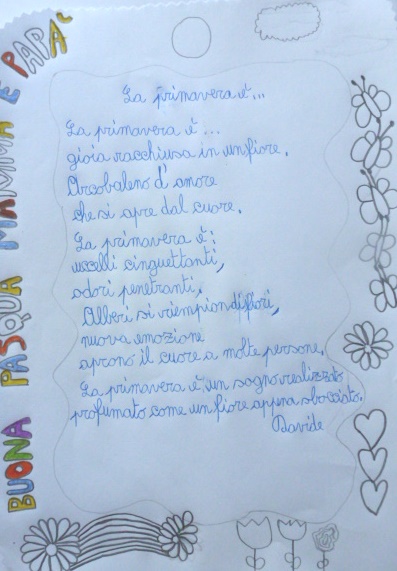 BUONA PASQUA MAMMA E PAPA'
La primavera è...
La primavera è...
gioia racchiusa in un fiore.
Arcobaleno d'amore
che si apre dal cuore.
La primavera è:
uccelli cinguettanti,
odori penetranti,
Alberi si riempion di fiori,
nuova emozione
aprono il cuore a molte persone.
La primavera è un sogno realizzato
profumato come un fiore appena sbocciato.
Davide